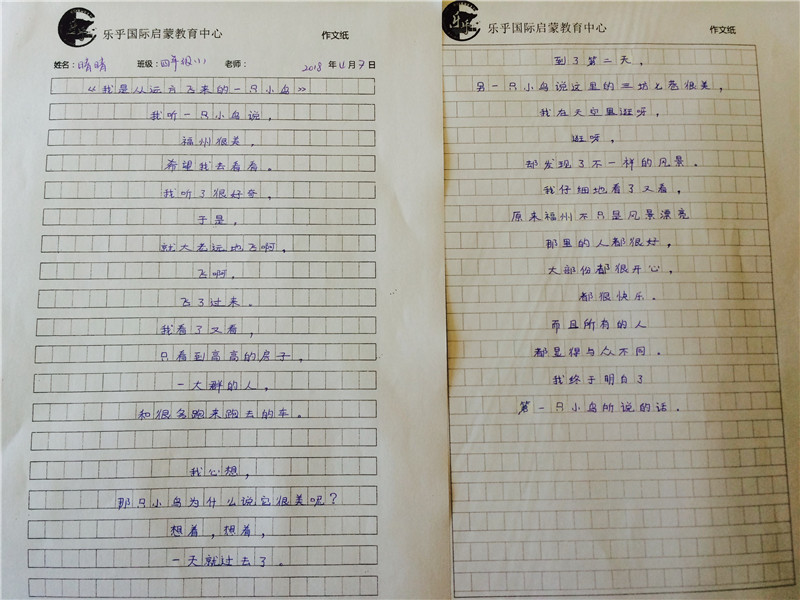 乐乎国际启蒙教育中心 作文纸
姓名：晴晴 班级：四年级(1) 老师： 2018 年 11 月 7 日
《我是从远方飞来的一只小鸟》
我听一只小鸟说，
福州很美，
希望我去看看。
我听了很好奇，
于是，
就大老远地飞啊，
飞啊，
飞了过来。
我看了又看，
只看到高高的房子，
一大群的人，
和很多跑来跑去的车。
我心想，
那只小鸟为什么说它很美呢？
想着，想着，
一天就过去了。
乐乎国际启蒙教育中心 作文纸
到了第二天，
另一只小鸟说这里的三坊七巷很美，
我在天空里逛呀，
逛呀，
却发现了不一样的风景。
我仔细地看了又看，
原来福州不只是风景漂亮
那里的人都很好，
大部份都很开心，
都很快乐。
而且所有的人
都是得与众不同。
我终于明白了
第一只小鸟所说的话。